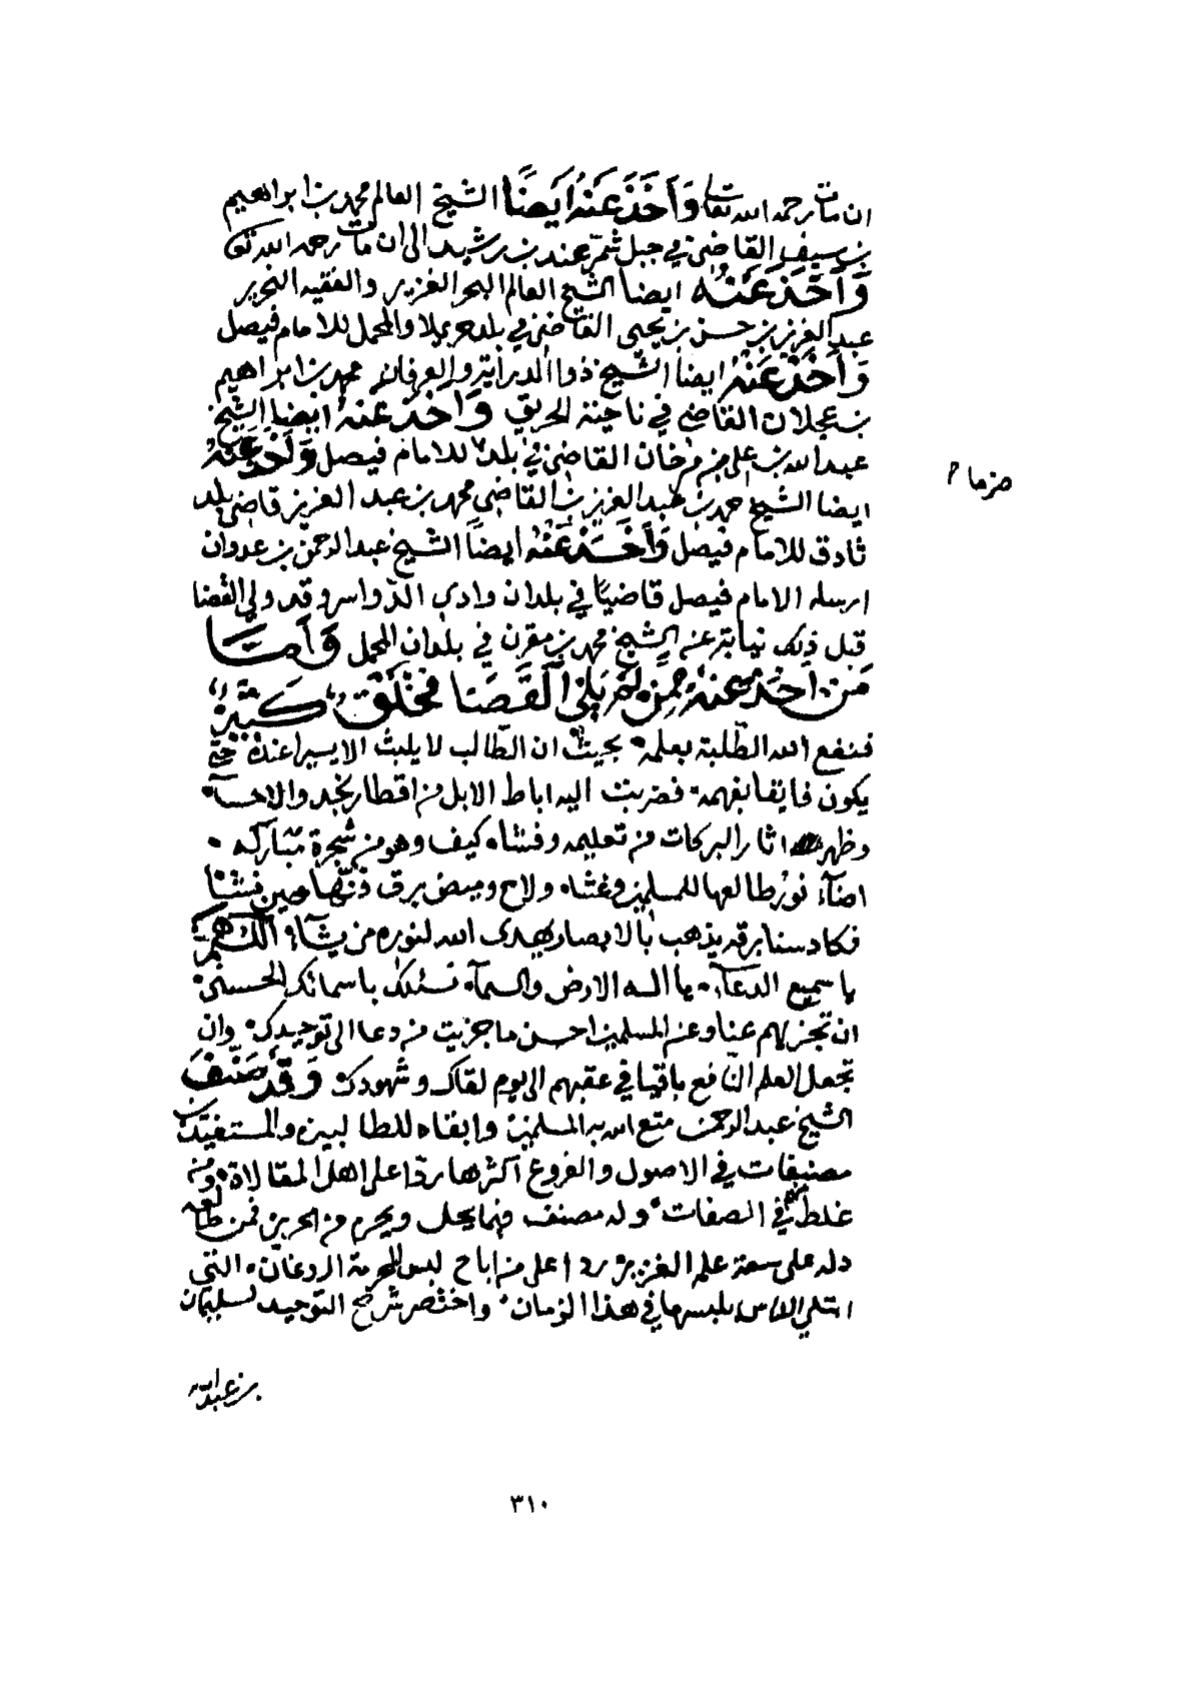 ان مات رحمه الله تعالى وَأَخَذَ عَنْهُ أَيضًا الشيخ العالم محمد بن ابراهيم
بن سيف القاضي في جبل شمّر عند بن رشيد الى ان مات رحمه الله تعالى
وَأَخَذَ عَنْهُ ايضا الشيخ العالم البحر الغزير والفقيه النحرير
عبد العزيز بن حسن بن يحيى القاضي في بلد حريملا والمحمل للامام فيصل
وَأَخَذَ عَنْهُ ايضا الشيخ ذوا الدراية والعرفان محمد بن ابراهيم
بن عجلان القاضي في ناحية الحريق وَأَخَذَ عَنْهُ ايضا الشيخ
عبد الله بن علي بن مرخان القاضي في بلد للامام فيصل وَأَخَذَ عَنْهُ
ضرما
ايضا الشيخ حمد بن عبد العزيز بن القاضي محمد بن عبد العزيز قاضي بلد
ثادق للامام فيصل وَأَخَذَ عَنْهُ ايضًا الشيخ عبد الرحمن بن عدوان
ارسله الامام فيصل قاضيًا في بلدان وادي الدواسر وقد ولي القضا
قبل ذلك نيابة عن الشيخ محمد بن مقرن في بلدان المحمل وَأَمَّا
مَن أَخَذَ عنهُ مِمَّن لم يلي القَضَا فخلق كَثِير
فنفع الله الطّلبة بعلمه بحيث ان الطّالب لا يلبث الا يسيرا عنده حتى
يكون فايقا بفهمه فضربت اليه اباط الابل من اقطار نجد والاحسآ
وظهر اثار البركات من تعليمه وفشاه كيف وهو من شجرة مباركه
اضآء نور طالعها للمسلمين وغشاه ولاح وميض برق ذنّها حين فشنا
فكاد سنا برقه يذهب بالابصار يهدى الله لنوره من يشآء اللهم
يا سميع الدعآء يا اله الارض والسمآء نسئلك باسمائك الحسنى
ان تجزيهم عنا وعن المسلمين احسن ما جزيت من دعا الى توحيدك وان
تجعل العلم النّافع باقيا في عقبهم الى يوم لقاك وشهودك وَقَدْ صَنَّفَ
الشيخ عبد الرحمن متع الله به المسلمين وابقاه للطالبين والمستفيدين
مصنفات في الاصول والفروع اكثرها ردّا على اهل المقالاة ومن
غلط في الصفات وله مصنف فيما يحل ويحرم من الحرير فمن طالعه
دله على سعة علمه الغزير ردا على من اباح لبس المحرمة الردغان التي
ابتلي الناس بلبسها في هذا الزمان واختصر شرح التوحيد لسليمان
بن عبد الله
٣١٠